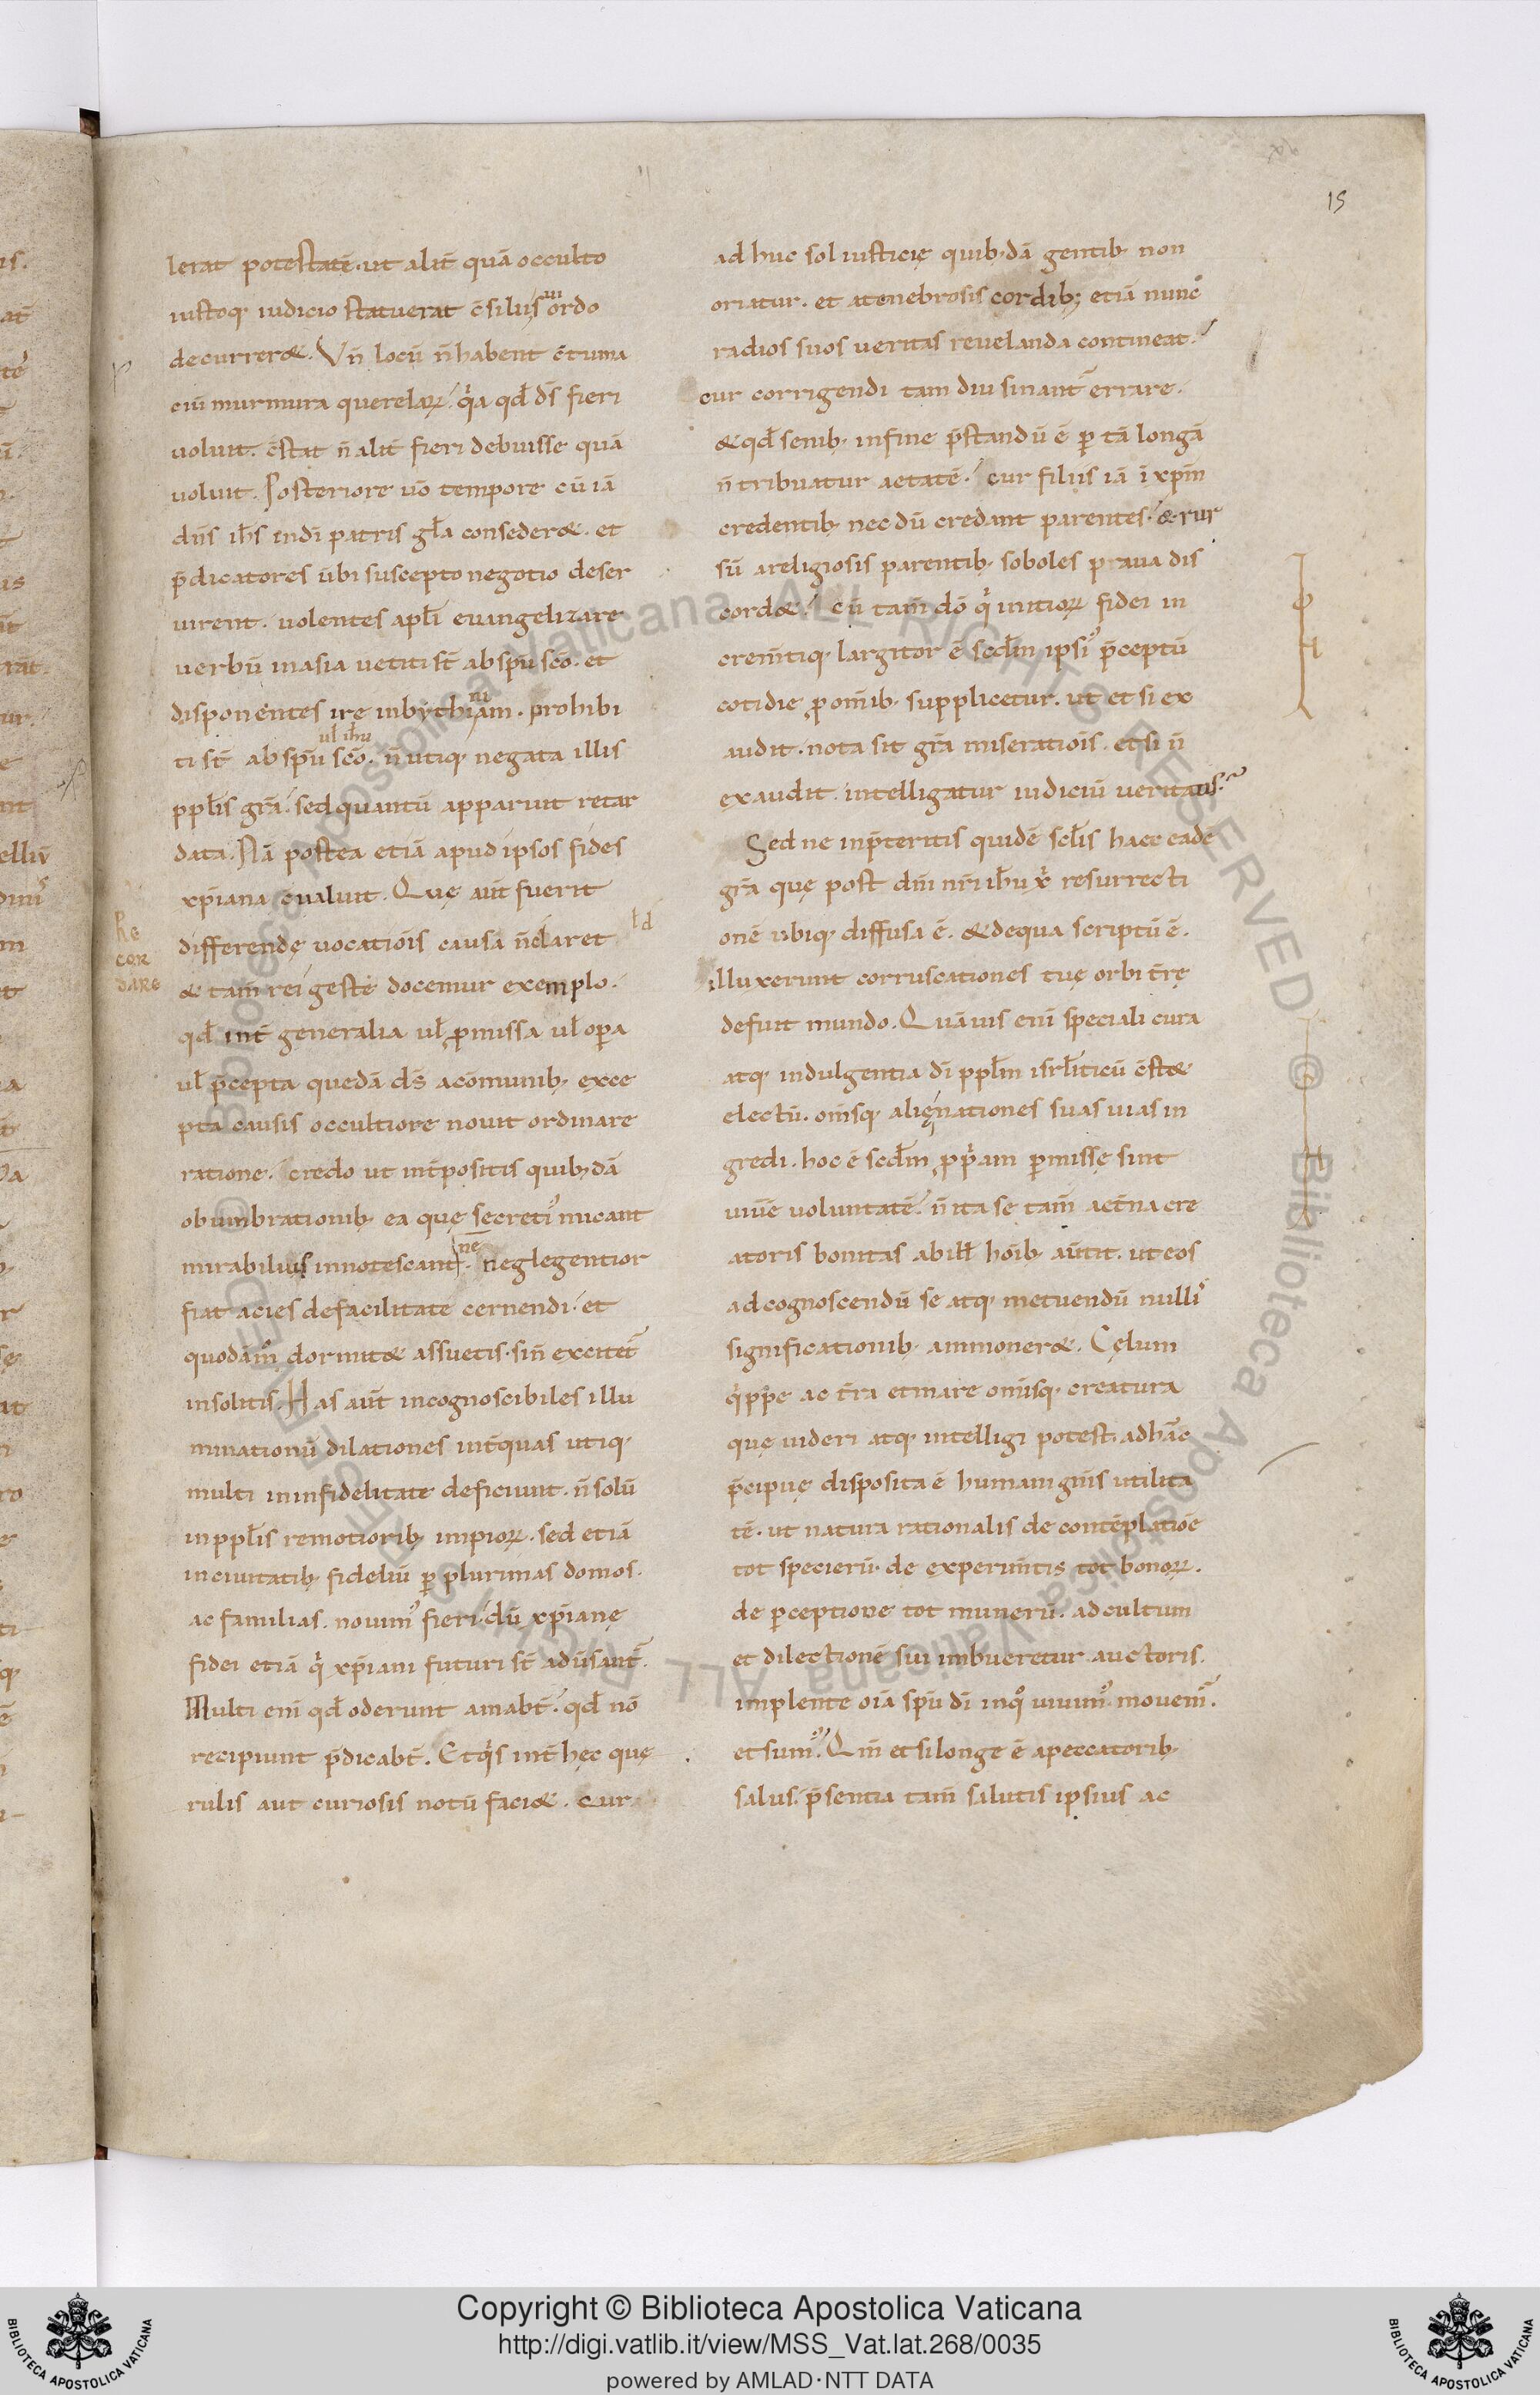 15
lerat potestatē. ut alit̄ quā occulto
iustoq; iudicio statuerat c̄silus ordo
iii
decurrer&. Vn̄ locū n̄ habent c̄tuma
ciū murmura querelaꝝ. qͥa qđ ds̄ fieri
voluit. c̄stat n̄ alit̄ fieri debuisse quā
voluit. Posteriore v̄o tempore cū iā
dn̄s ih̄s indī patris gl̄a conseder&. et
p̄dicatores ūbi suscepto negotio deser
virent. volentes apl̄i evangelizare
verbū in asia vetiti st̄ ab spū scō. et
disponentes ire in bythiam. prohibi
ni
ti st̄ ab spū scō. n̄ utiq; negata illis
ul ih̄u
ppl̄is gr̄a. sed quantū apparuit retar
data. Nā postea etiā apud ipsos fides
xp̄iana c̄valuit. Quę aut̄ fuerit
differendę vocatiōis causa n̄ claret
& tam̄ rei gestę docemur exemplo.
Re
cor
dare
qđ int̄ generalia ul̄ ꝓmissa ul̄ oꝑa
ul̄ p̄cepta quedā ds̄ a cōmunib; exce
pta causis occultiore novit ordinare
ratione. credo ut int̄positis quib;dā
obumbrationib; ea quę secretiꝰ micant
mirabilius innotescant. neglegentior
ne
fiat acies de facilitate cernendi. et
quodāmͦ dormit& assuetis. sin̄ excitet᷑
insolitis. Has aut̄ incognoscibiles illu
minationū dilationes int̄ quas utiq;
multi in infidelitate deficiunt. n̄ solū
in ppl̄is remotiorib; impioꝝ. sed etiā
in civitatib; fideliū ꝑ plurimas domos.
ac familias. novimꝰ fieri. dū xp̄ianę
fidei etiā qͥ xp̄iani futuri st̄ adūsant᷑.
Multi eni qđ oderunt amabt̄. qđ nō
recipiunt p̄dicabt̄. Et qͥs int̄ hęc quę
rulis aut curiosis notū faci&. cur
ad huc sol iusticię quib;dā gentib; non
oriatur. et a tenebrosis cordib; etiā nunc
radios suos veritas revelanda contineat.
cur corrigendi tam diu sinant᷑ errare.
& qđ senib; in fine p̄standū ē ꝑ tā longā
n̄ tribuatur aetatē. cur filiis iā ī xp̄m
credentib; necdū credant parentes. & rur
sū a religiosis parentib; soboles prava dis
cord&. cū tam̄ dō qͥ initioꝝ fidei in
crem̄tiq; largitor ē scd̄m ipsiꝰ p̄ceptū
cotidie ꝓ om̄ib; supplicetur. ut et si ex
audit. nota sit gr̄a miseratiōis. et si n̄
exaudit. intelligatur iudiciū veritatis.
Sed ne in p̄teritis quidē scl̄is haec eadē
gr̄a quę post dn̄i nr̄i ih̄u xͥ resurrecti
onē ubiq; diffusa ē. & de qua scriptū ē.
illuxerunt corruscationes tuę orbi t̄rę
defuit mundo. Quāvis enī speciali cura
atq; indulgentia dī ppl̄m isrl̄iticū c̄st&
electū. om̄sq; alię nationes suas vias in
gredi. hoc ē scd̄m ꝓpͥam ꝑmissę sint
viv̄e voluntatē. n̄ ita se tam̄ aet̄na cre
atoris bonitas ab ill̄ hōib; av̄tit. ut eos
ad cognoscendū se atq; metuendū nulliˢ
significationib; ammoner&. Cęlum
qͥppe ac t̄ra et mare omīsq; creatura
quę videri atq; intelligi potest. ad hāc
p̄cipuę disposita ē humani gn̄is utilita
tē. ut natura rationalis de contēplatiōe
tot specierū. de experim̄tis tot bonoꝝ.
de ꝑceptione tot munerū. ad cultum
et dilectionē sui imbueretur auctoris.
implente oīa spū dī in qͦ vivimꝰ movem᷑.
et sumꝰ. Qm̄ et si longe ē a peccatorib;
salus. p̄sentia tam̄ salutis ipsius ac
Copyright © Biblioteca Apostolica Vaticana
http://digi.vatlib.it/view/MSS_Vat.lat.268/0035
powered by AMLAD·NTT DATA
BIBLIOTECA APOSTOLICA VATICANA
BIBLIOTECA APOSTOLICA VATICANA